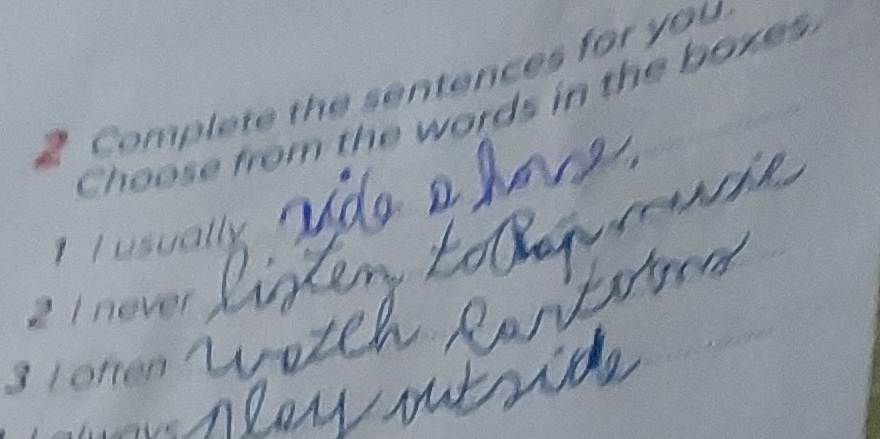 2 Complete the sentences for you.
Choose from the words in the boxes.
1 I usually ride a horse.
2 I never listen to rap music
3 I often watch
I always play outside